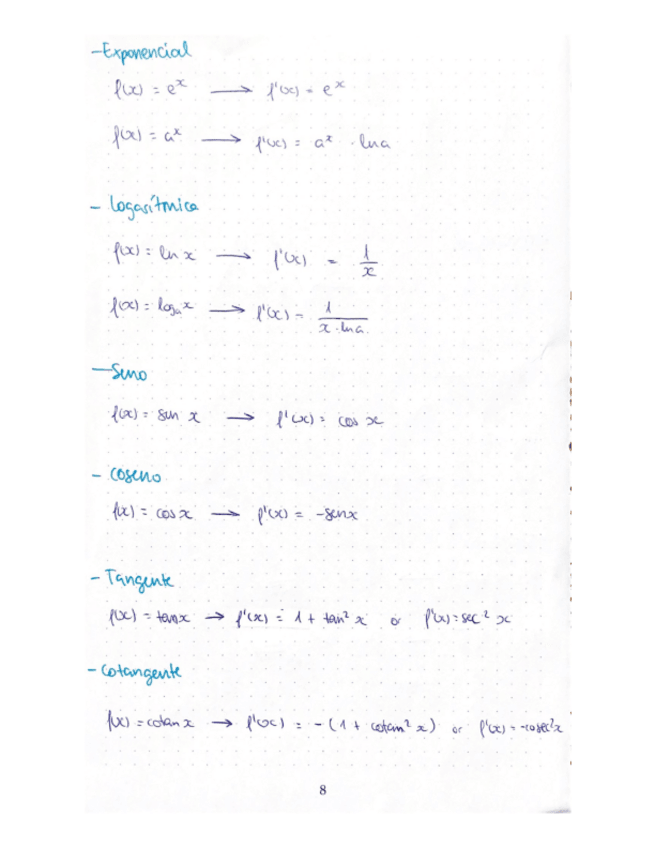 - Exponencial
f(x) = e^x → f'(x) = e^x
f(x) = a^x → f'(x) = a^x · ln a
- logarítmica
f(x) = ln x → f'(x) = 1/x
f(x) = log_a x → f'(x) = 1/(x · ln a)
- Seno
f(x) = sen x → f'(x) = cos x
- coseno
f(x) = cos x → f'(x) = -sen x
- Tangente
f(x) = tan x → f'(x) = 1 + tan² x or f'(x) = sec² x
- cotangente
f(x) = cotan x → f'(x) = - (1 + cotan² x) or f'(x) = -cosec² x
8